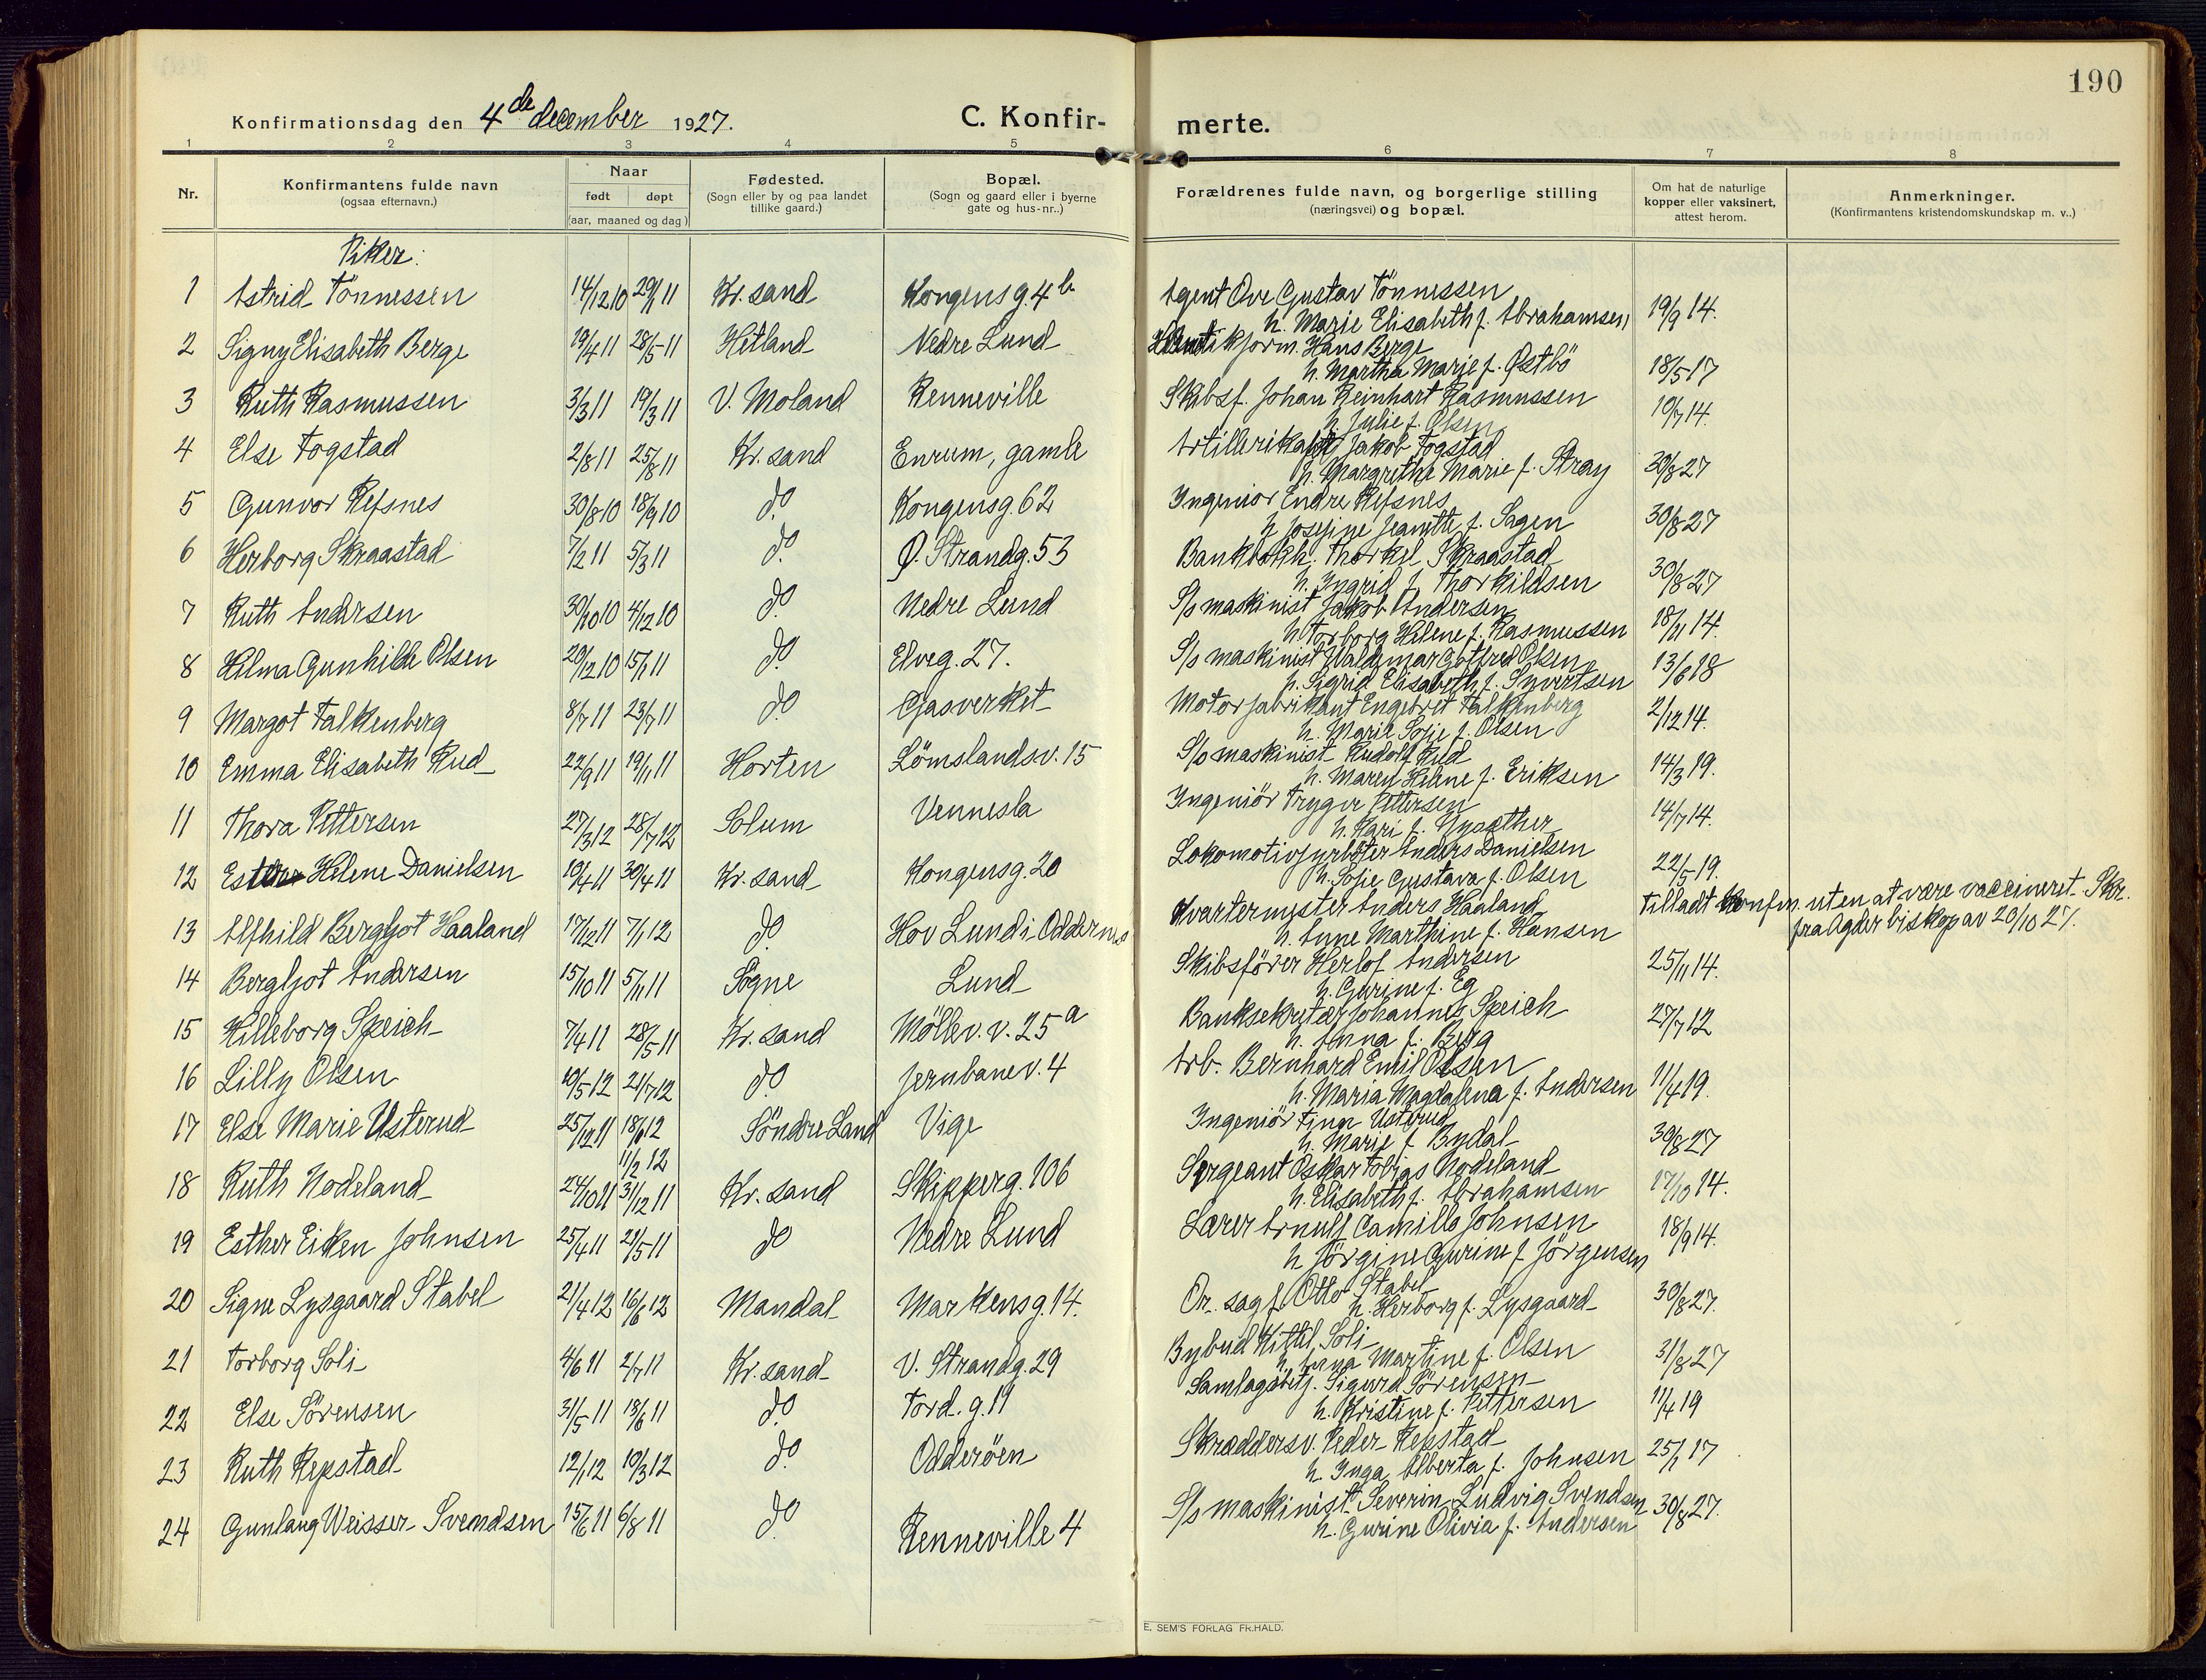 190
Konfirmationsdag den 4de december 1927.
C. Konfir-
merte.
1 2 3 4 5 6 7 8
Nr.
Konfirmantens fulde navn
(ogsaa efternavn.)
Naar
født døpt
(aar, maaned og dag)
Fødested.
(Sogn eller by og paa landet
tillike gaard.)
Bopæl.
(Sogn og gaard eller i byerne
gate og hus-nr..)
Forældrenes fulde navn, og borgerlige stilling
(næringsvei) og bopæl.
Om hat de naturlige
kopper eller vaksinert,
attest herom.
Anmerkninger.
(Konfirmantens kristendomskundskap m. v..)
Piker:
1 Astrid Tönnessen 14/12 10 29/1 11 Kr.sand Kongensg. 4b Agent Ove Gustav Tönnessen
h. Marie Elisabeth f. Abrahamsen 19/9 14.
2 Signy Elisabeth Berge 19/4 11 28/5 11 Hetland Nedre Lund Hans Berge
h. Martha Marie f. Østbö 18/5 17
3 Ruth Rasmussen 3/3 11 19/3 11 V. Moland Renneville Skibsf. Johan Reinhart Rasmussen
h. Julie f. Olsen 10/7 14.
4 Else Togstad 2/8 11 25/8 11 Kr. sand Enrum, gamle Jakob Togstad
h. Margrethe Marie f. Stray 30/8 27
5 Gunvor Refsnes 30/8 10 18/9 10 do Kongensg. 62 Ingeniör Endre Refsnes
h Josefine Jeanette f. Sagen 30/8 27
6 Herborg Skraastad 7/2 11 5/3 11 do Ø. Strandg. 53 Bankbokh. Thorkel Skraastad
h. Ingrid f. Thorkildsen 30/8 27
7 Ruth Andersen 30/10 10 4/12 10 do Nedre Lund S/s maskinist Jakob Andersen
h. Torborg Helene f. Rasmussen 18/11 14.
8 Hilma Gunhilde Olsen 20/12 10 15/1 11 do Elveg. 27. S/s maskinist Waldemar Gotfred Olsen
h. Sigrid Elisabeth f. Syvertsen 13/6 18
9 Margot Falkenberg 8/7 11 23/7 11 do Gasverket Motorfabrikant Engebret Falkenberg
h. Marie Sofie f. Olsen 2/12 14.
10 Emma Elisabeth Rud 22/9 11 19/11 11 Horten Lömslandsv. 15 S/s maskinist Rudolf Rud
h. Maren Helene f. Eriksen 14/3 19.
11 Thora Pettersen 27/3 12 28/7 12 Solum Vennesla Ingeniör Trygve Pettersen
h. Kari f. 14/7 14.
12 Esther Helene Danielsen 10/4 11 30/4 11 Kr. sand Kongensg. 20 Lokomotivfyrböter Anders Danielsen
h. Sofie Gustava f. Olsen 22/5 19.
13 Alfhild Bergljot Haaland 17/12 11 7/1 12 do Hov Lund i Oddernes Kvartermester Anders Haaland
h. Anne Marthine f. Hansen Tilladt konfm. uten at være vaccineret. Skr.
fra Agder biskop av 20/10 27.
14 Bergljot Andersen 15/10 11 5/11 11 Sögne Lund Skibsförer Herlof Andersen
h. Gurine f. Eg 25/11 14.
15 Hilleborg Speich 7/4 11 28/5 11 Kr. sand Möllev. v. 25a Banksekretær Johannes Speich
h. Anna f. Berg 27/7 12
16 Lilly Olsen 10/5 12 21/7 12 do Jernbanev. 4 Arb. Bernhard Emil Olsen
h. Maria Magdalena f. Andersen 11/4 19.
17 Else Marie Usterud 25/12 11 18/6 12 Söndre Land Vige Ingeniör Finn Usterud
h. Marie f. Bydal 30/8 27
11/2 12
18 Ruth Nodeland 24/10 11 31/12 11 Kr. sand Skipperg. 106 Sergeant Oskar Tobias Nodeland
h. Elisabeth f. Abrahamsen 17/10 14.
19 Esther Eiken Johnsen 25/4 11 21/5 11 do Nedre Lund Lærer Arnulf Camillo Johnsen
h Jörgine Gurine f. Jörgensen 18/9 14.
20 Signe Lysgaard Stabel 21/4 12 16/6 12 Mandal Markensg. 14. Or. sagf. Otto Stabel
h. Herborg f. Lysgaard 30/8 27.
21 Torborg Soli 4/6 11 2/7 11 Kr. sand V. Strandg. 29 Bybud Kittil Soli
h. Anna Martine f. Olsen 31/8 27
22 Else Sörensen 31/5 11 18/6 11 do Tord. g. 19 Samlagsbetj. Sigurd Sörensen
h. Kristine f. Pettersen 11/4 19
23 Ruth Repstad 12/1 12 10/3 12 do Odderöen Skræddersv. Peder Repstad
h. Inga Alberta f. Johnsen 25/1 17
24 Gunlaug Weisser Svendsen 15/6 11 6/8 11 do Renneville 4 S/s maskinist Severin Ludvig Svendsen
h. Gurine Olivia f. Andersen 30/8 27.
E. SEM'S FORLAG FR.HALD.